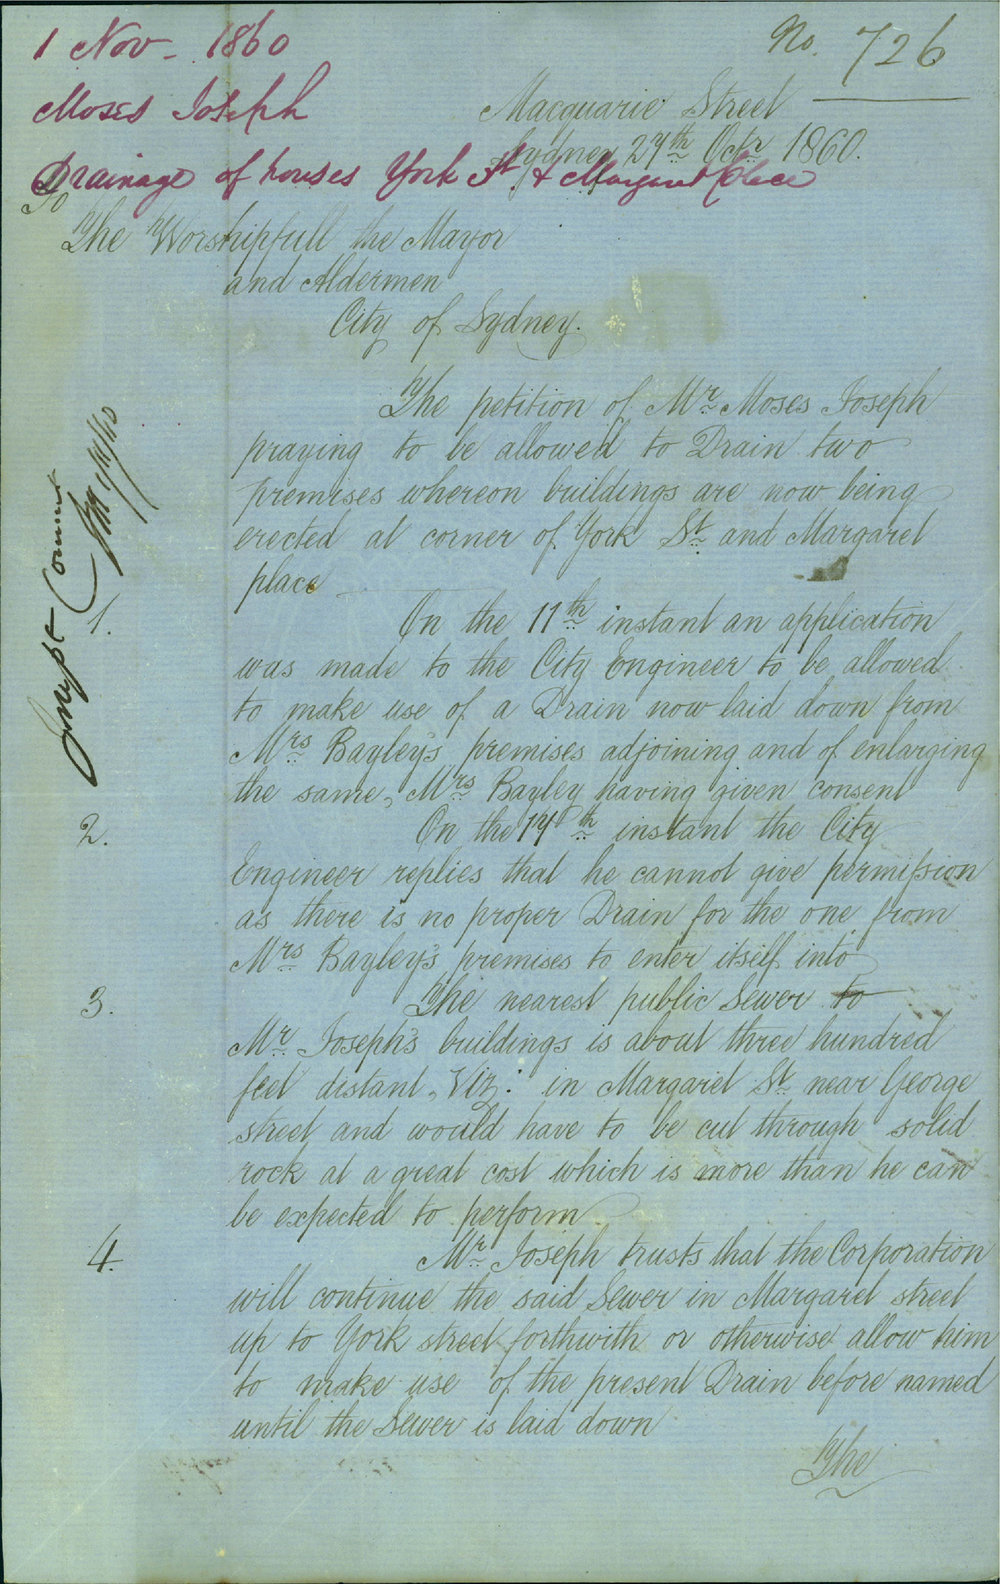 1 Nov - 1860
No. 726
Moses Joseph
Macquarie Street
Sydney 27th Octr 1860.
Drainage of houses York St & Margaret place
To
The Worshipfull the Mayor
and Aldermen
City of Sydney.
The petition of Mr Moses Joseph
praying to be allowed to Drain two
premises whereon buildings are now being
erected at corner of York St and Margaret
place
Impt Comme
1.
On the 11th instant an application
was made to the City Engineer to be allowed
to make use of a Drain now laid down from
Mrs Bayley's premises adjoining and of enlarging
the same, Mrs Bayley having given consent
2.
On the 17th instant the City
Engineer replies that he cannot give permission
as there is no proper Drain for the one from
Mrs Bayley's premises to enter itself into
3.
The nearest public Sewer to
Mr Joseph's buildings is about three hundred
feet distant, Viz: in Margaret St near George
street and would have to be cut through solid
rock at a great cost which is more than he can
be expected to perform
4.
Mr Joseph trusts that the Corporation
will continue the said Sewer in Margaret street
up to York street forthwith or otherwise allow him
to make use of the present Drain before named
until the Sewer is laid down
The